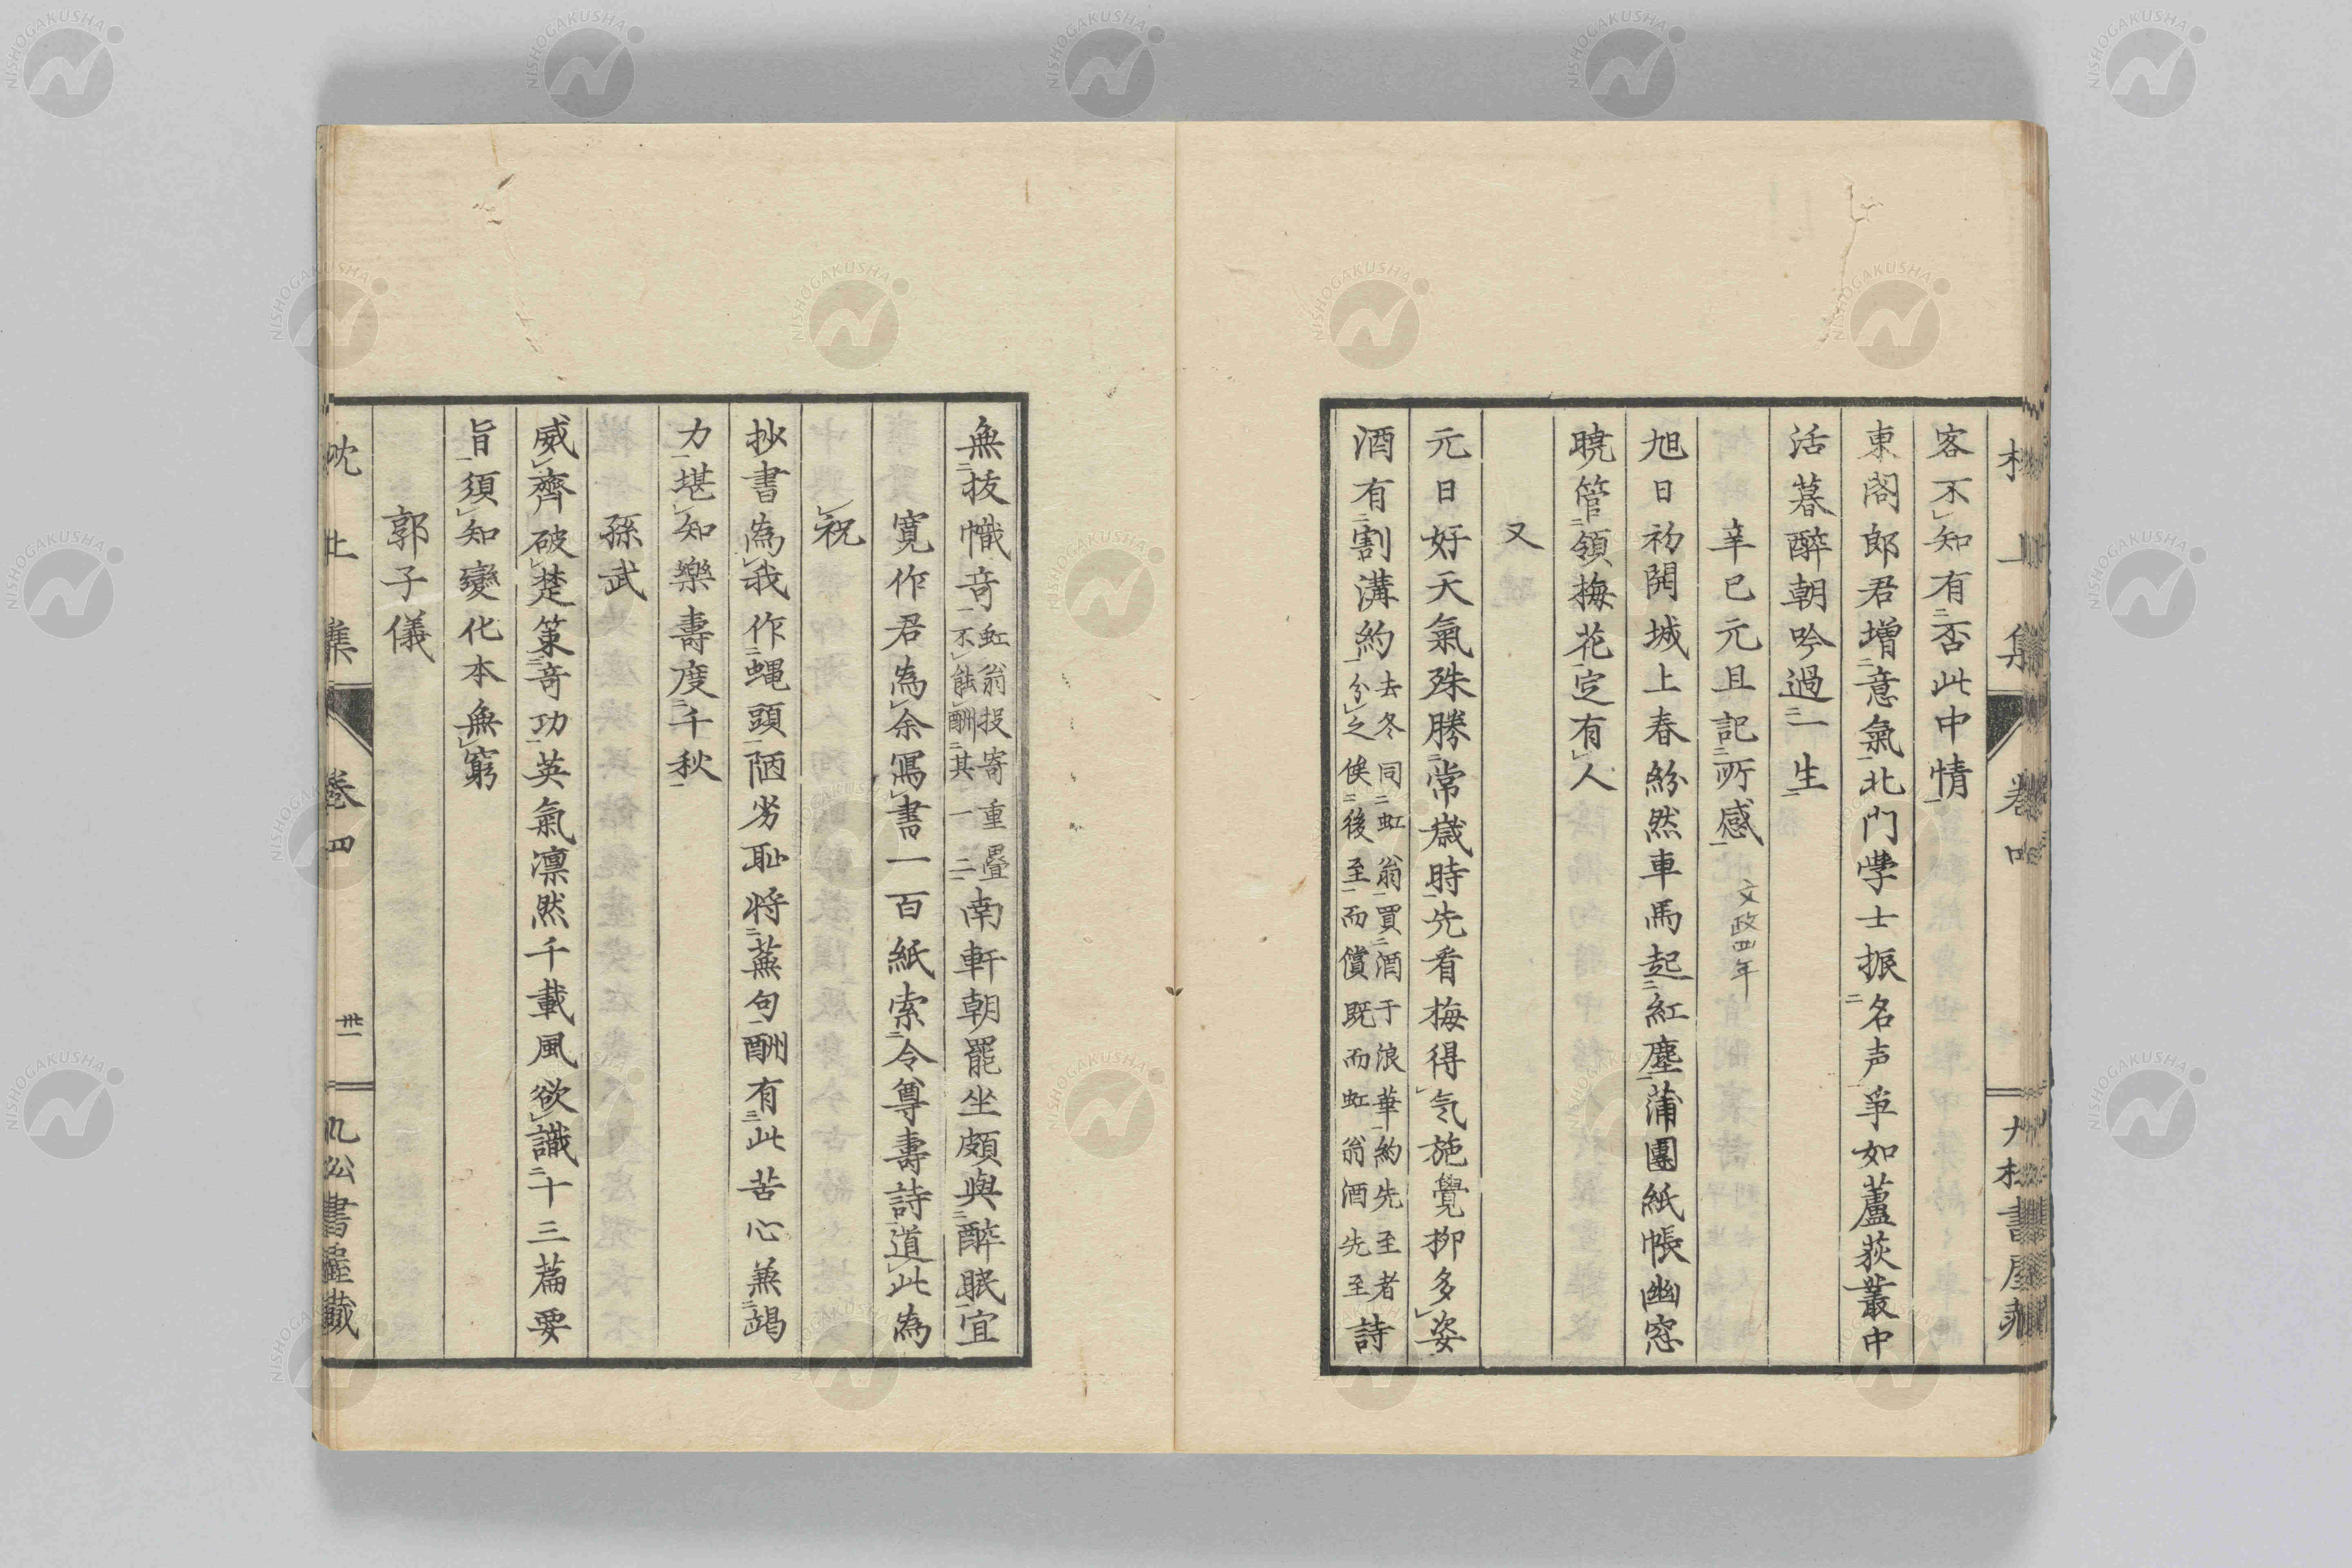 客不知有否此中情
東閣郎君増意氣北門學士振名声爭如蘆荻叢中
活暮醉朝吟過一生
辛巳元旦記所感 文政四年
旭日初開城上春紛然車馬起紅塵蒲團紙帳幽窓
暁管領梅花定有人
又
元日好天氣殊勝常歳時先看梅得气施覺柳多姿
酒有割溝約 去冬同虹翁買酒于浪華約先至者
分之俟後至而償既而虹翁酒先至 詩
無抜幟竒 虹翁投寄重疊
不能酬其一二 南軒朝罷坐頗與醉眠宜
寛作君為余寫書一百紙索令尊壽詩道此為
祝
抄書為我作蝿頭陋劣耻将蕪句酬有此苦心兼竭
力堪知樂壽度千秋
孫武
威齊破楚策竒功英氣凛然千載風欲識十三篇要
旨須知變化本無窮
郭子儀
卷四
卅一